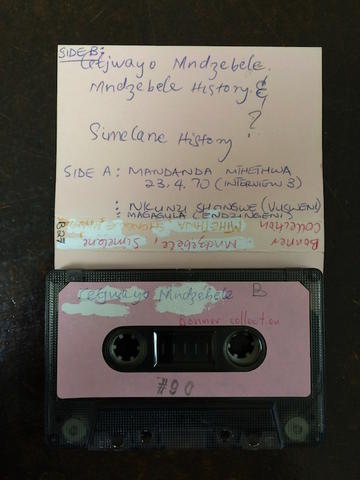 SIDE B:
Cetjwayo Mndzebele.
Mndzebele History &
?
Simelane History
SIDE A: MANDANDA MTHETHWA
23.4.70 (INTERVIEW 3)
: NKUNZI SHONGWE (VUSWENI)
: MAGAGULA (ENDZINGENI)
Bonner Collection
Mndzebele, Simelane
MTHETHWA
B27
Cetjwayo Mndzebele B
Bonner collection
#90